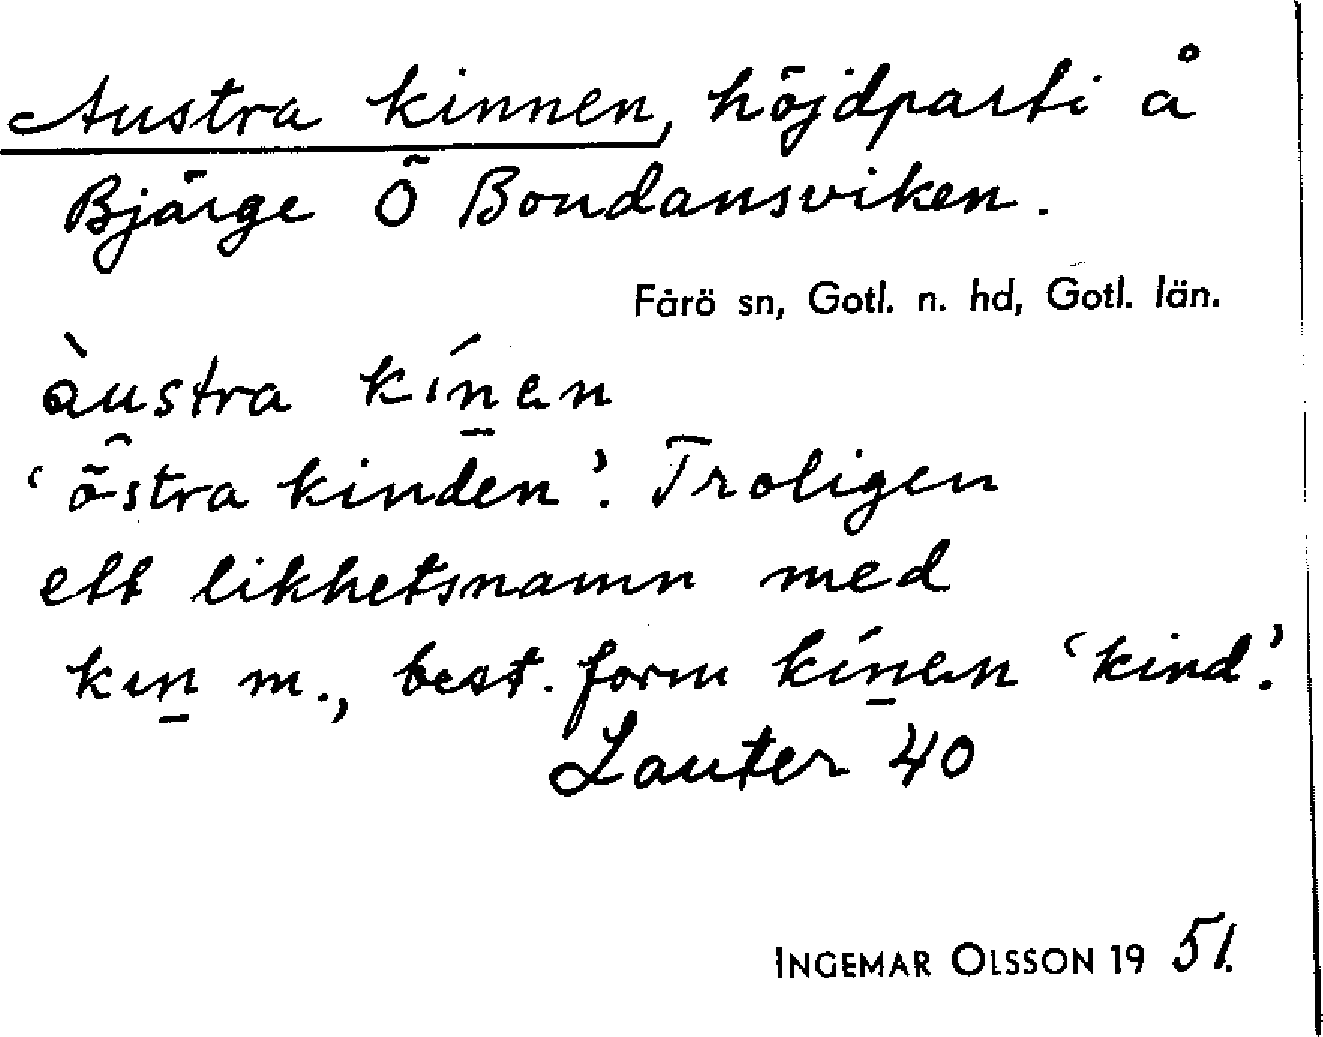 Austra kinnen, höjdparti å
Bjärge Ö Bondansviken.
Fårö sn, Gotl. n. hd, Gotl. län.
àustra kín̲en
‘östra kinden’. Troligen
ett likhetsnamn med
kın̲ m., best. form kín̲en ‘kind’.
Lauter 40
INGEMAR OLSSON 19 51.